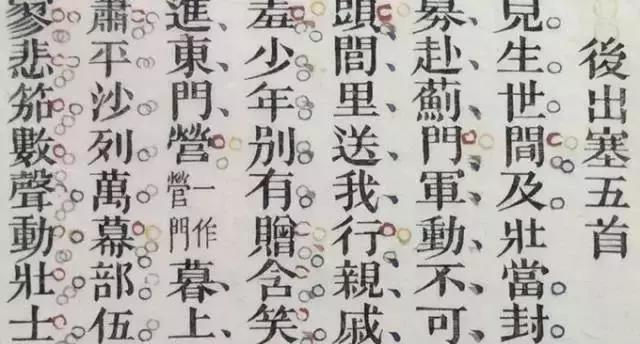 後出塞五首
兒生世間及壯當封
募赴薊門軍動不可
頭閭里送我行親戚
羞少年別有贈含笑
進東門、營一作營門暮上
蕭平沙列萬幕部伍
寥悲笳數聲動壯士